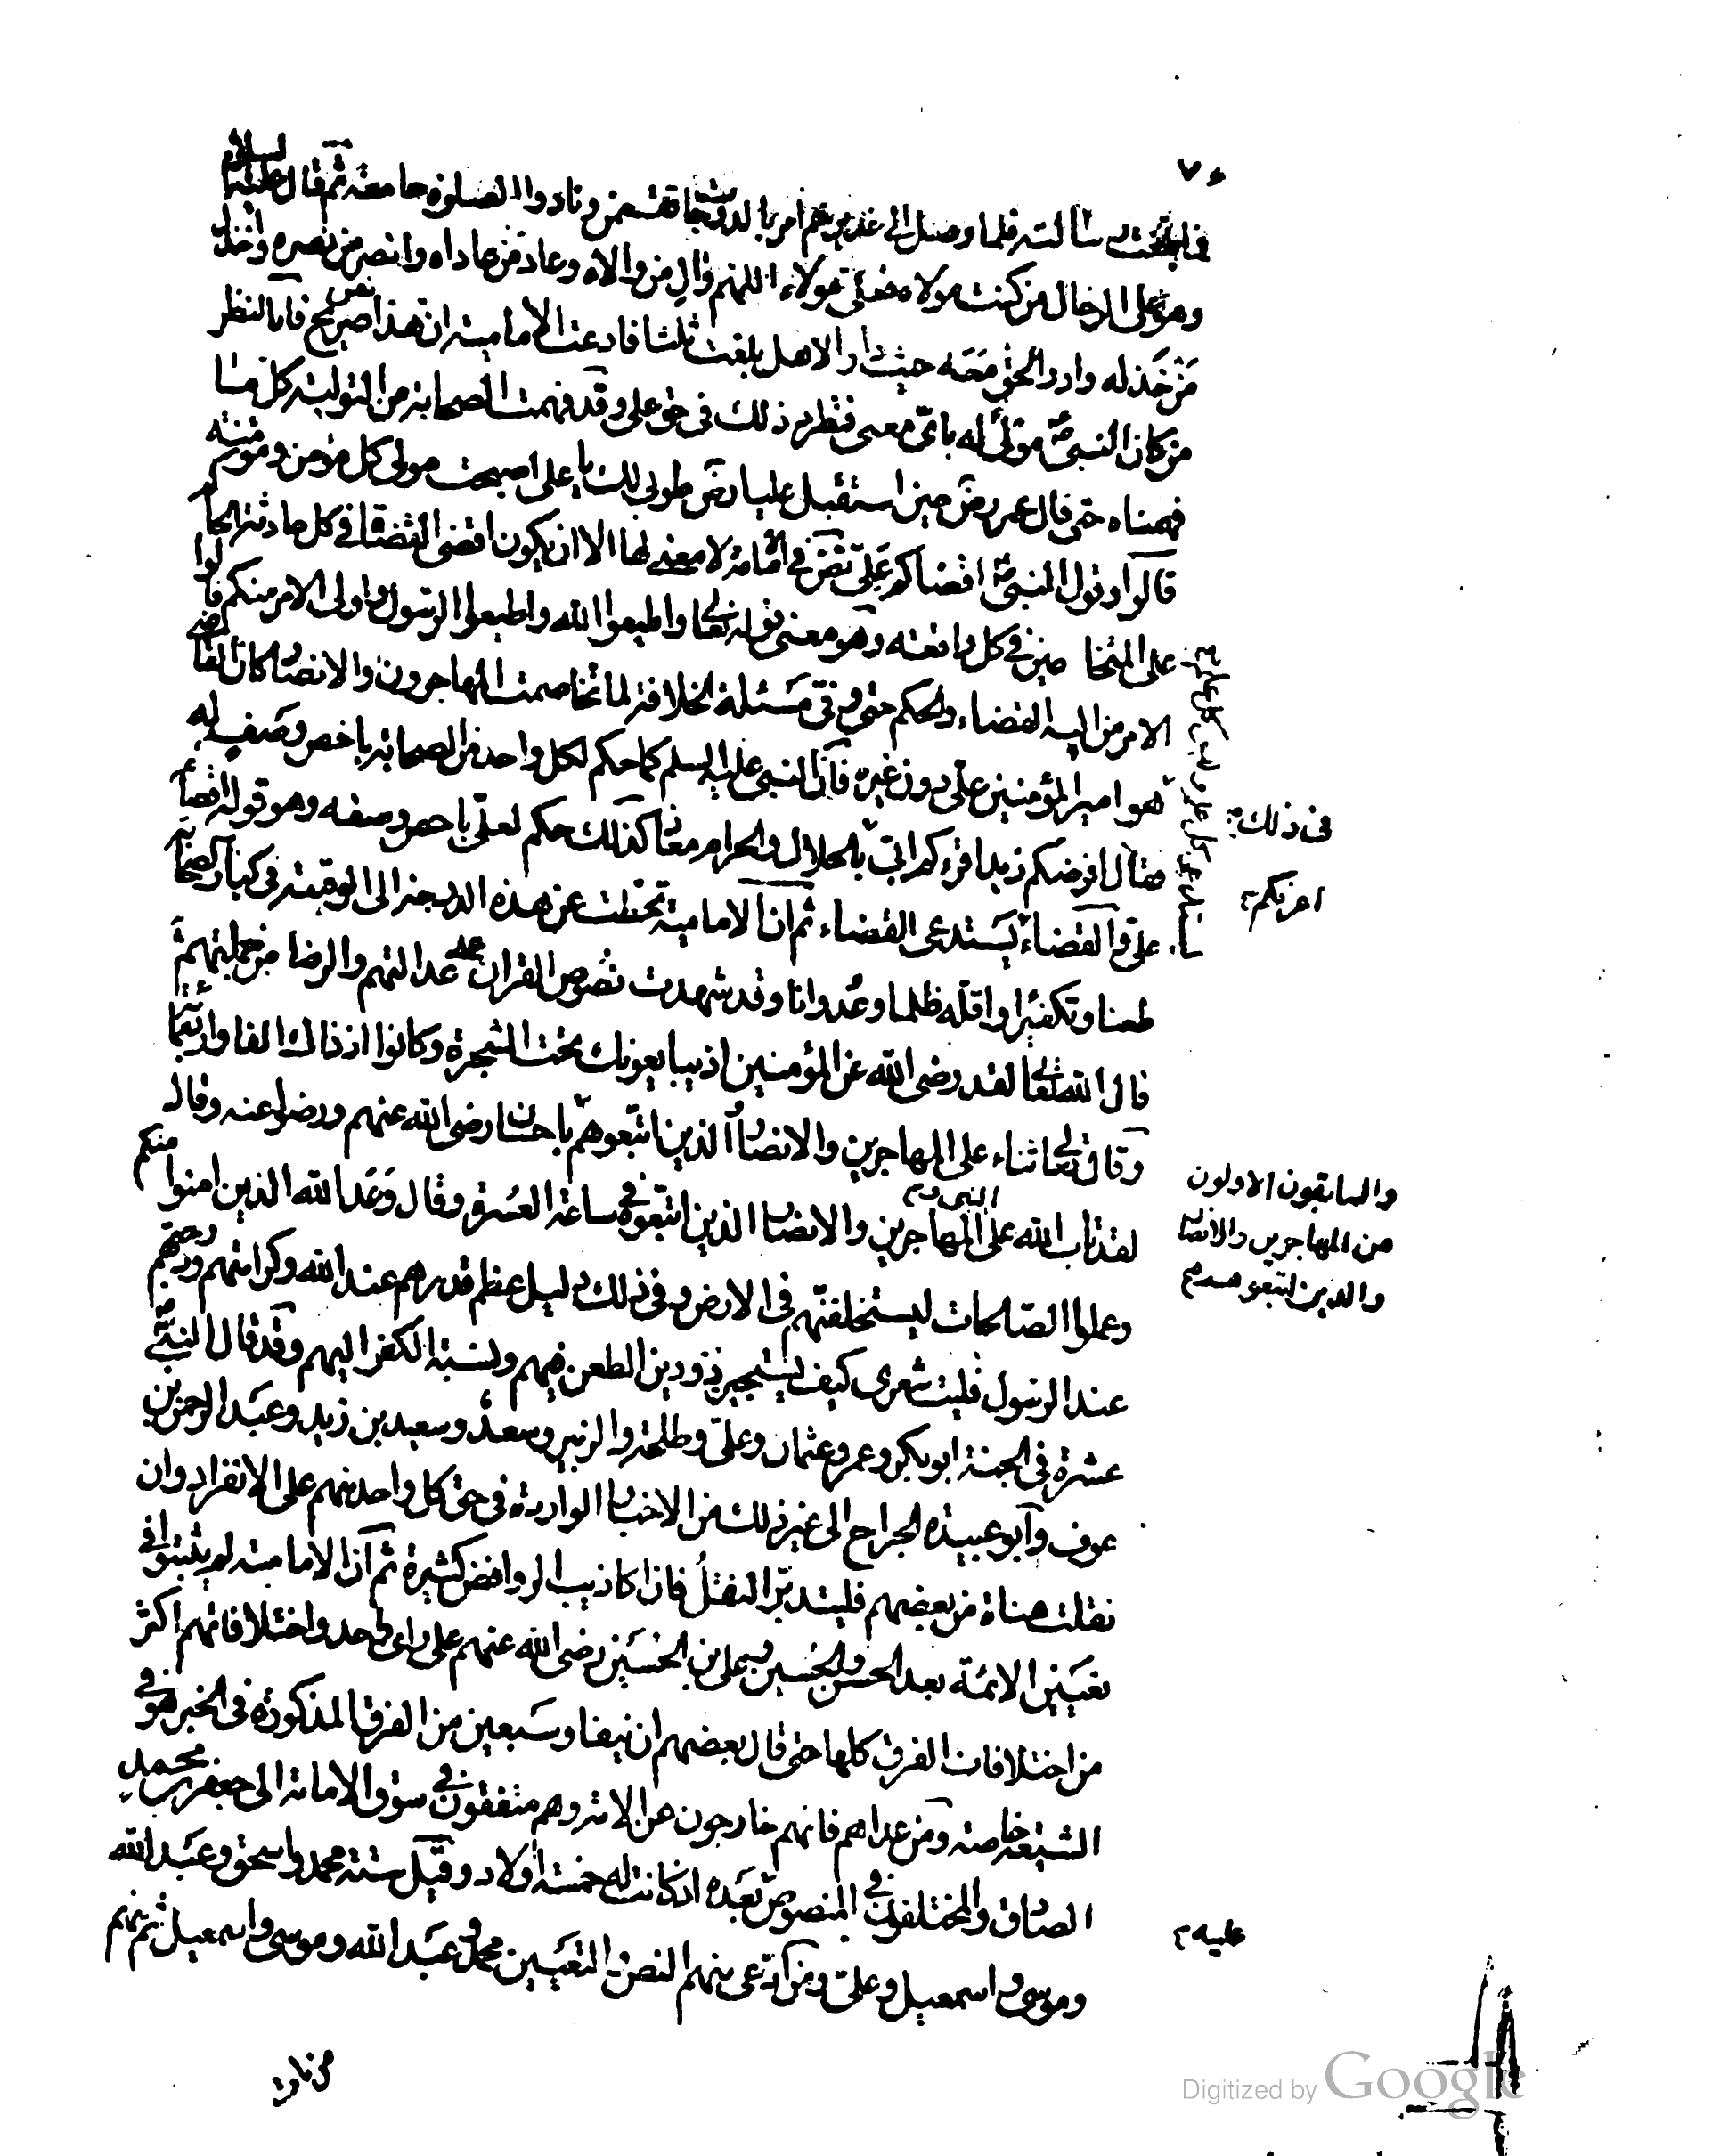 ٧٠
فما بلغت رسالته فلما وصل الى غدير خم امر بالدرجات فقممن ونادوا الصلوة جامعة ثم قال عليه السلام
وهو على الرحال من كنت مولاه فعلى مولاه اللهم وال من والاه وعاد من عاداه وانصر من نصره واخذل
من خذله وادر الحق معه حيث دار الا هل بلغت ثلثا فادعت الامامية ان هذا نص صريح فانا ننظر
من كان النبى ص مولى له باى معنى فنطرد ذلك فى حق على وقد فهمت الصحابة من التولية كل ما
فهمناه حتى قال عمر رض حين استقبل عليا رض طوبى لك يا على اصبحت مولى كل مؤمن ومؤمنة
قالوا وقول النبى ص اقضاكم على نص فى الامامة لا معنى لها الا ان يكون اقضى القضاة فى كل حادثة الحاكم
على المتخاصمين فى كل واقعة وهو معنى قوله تعالى واطيعوا الله واطيعوا الرسول واولى الامر منكم قالوا
الامر من اليه القضاء والحكم حتى وفى مسئلة الخلافة لما تخاصمت المهاجرون والانصار كان القاضى
فى ذلك
هو امير المؤمنين على دون غيره فان النبى عليه السلم كما حكم لكل واحد من الصحابة باخص وصف له
فقال افرضكم زيد اقرءكم ابى بالحلال والحرام معاذ كذلك حكم لعلى باخص وصفه وهو قوله اقضاكم
اعرفكم
على والقضاء يستدعى القضاء ثم ان الامامية تخطت عن هذه الدرجة الى الوقيعة فى كبار الصحابة
طعنا وتكفيرا واقله ظلما وعدوانا وقد شهدت نصوص القران على عدالتهم والرضا من جملتهم
قال الله تعالى لقد رضى الله عن المؤمنين اذ يبايعونك تحت الشجرة وكانوا اذ ذاك الفا واربعمائة
وقال تعالى ثناء على المهاجرين والانصار الذين اتبعوهم باحسان رضى الله عنهم ورضوا عنه وقال
والسابقون الاولون
من المهاجرين والانصار
والذين اتبعوهم
لقد تاب الله على النبى والمهاجرين والانصار الذين اتبعوه فى ساعة العسرة وقال وعد الله الذين امنوا منكم
وعملوا الصالحات ليستخلفنهم فى الارض وفى ذلك دليل عظم قدرهم عند الله وكرامتهم ودرجتهم
عند الرسول فليت شعرى كيف يستجير ذو دين الطعن فيهم ونسبة الكفر اليهم وقد قال النبى
عشرة فى الجنة ابو بكر وعمر وعثمان وعلى وطلحة والزبير وسعد وسعيد بن زيد وعبد الرحمن بن
عوف وابو عبيدة الجراح الى غير ذلك من الاخبار الواردة فى حق كل واحد منهم على الانفراد وان
نقلت هناة من بعضهم فليتدبر النقل فان اكاذيب الروافض كثيرة ثم ان الامامية لم يثبتوا فى
تعيين الائمة بعد الحسن والحسين وعلى بن الحسين رضى الله عنهم على راى واحد واختلافاتهم اكثر
من اختلافات الفرق كلها حتى قال بعضهم ان نيفا وسبعين من الفرق المذكورة فى الخبر هو فى
الشيعة خاصة ومن عداهم فانهم خارجون عن الامة وهم متفقون فى سوق الامامة الى جعفر بن محمد
الصادق والمختلفون فى المنصوص بعده اذ كانت له خمسة اولاد وقيل ستة محمد واسحق وعبد الله
عليه
وموسى واسمعيل وعلى ومن ادعى منهم النص والتعيين محمد وعبد الله وموسى واسمعيل ثم منهم
من مات
Digitized by Google